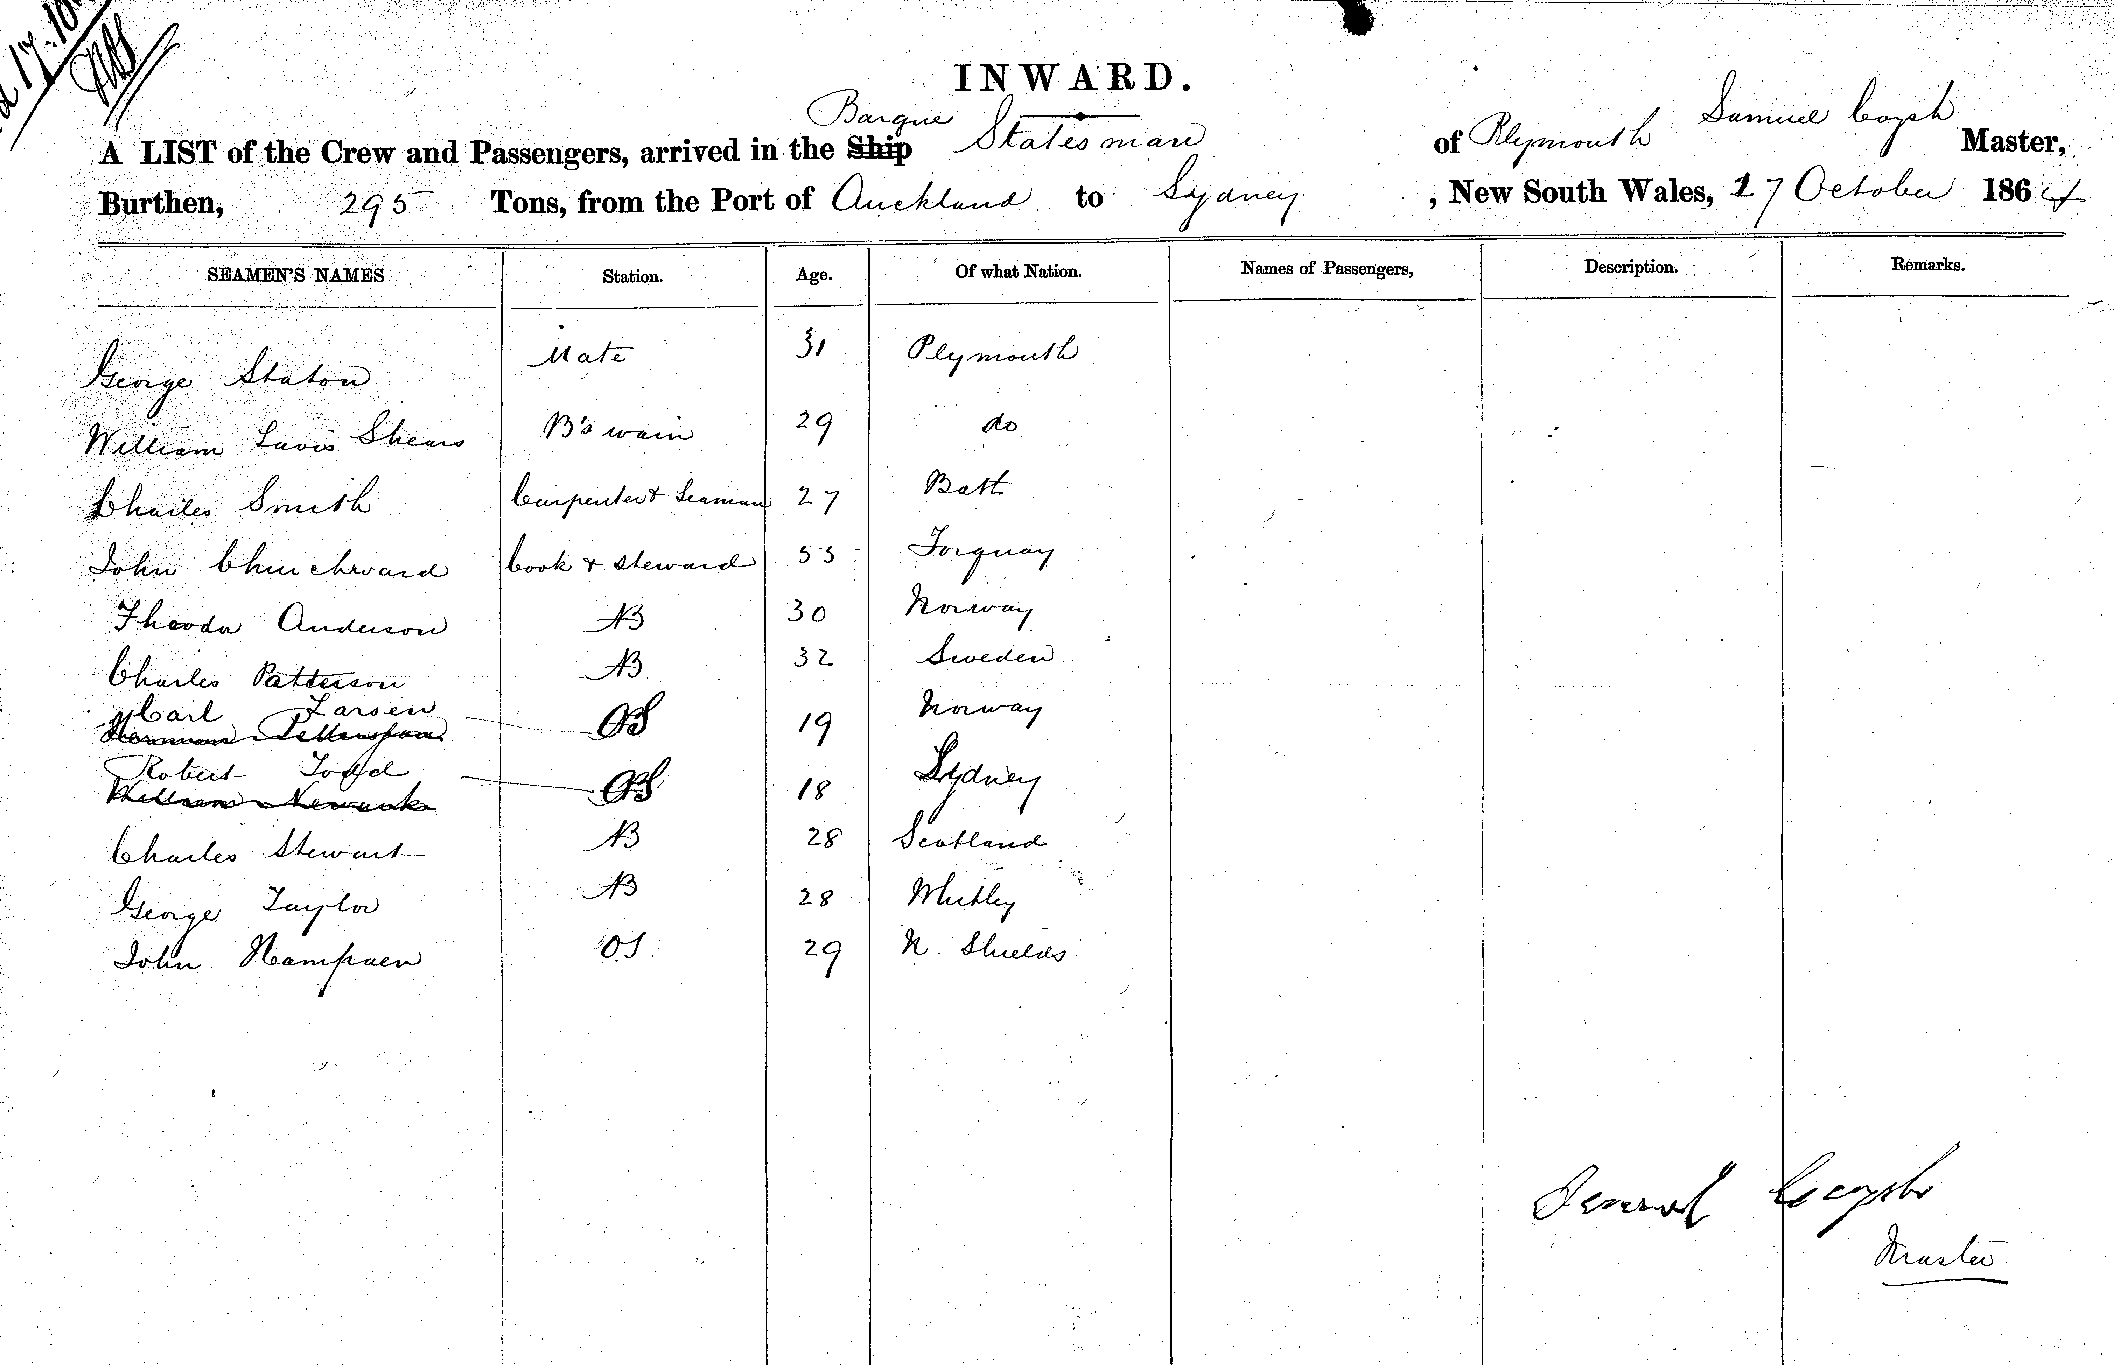 17.10
INWARD.
A LIST of the Crew and Passengers, arrived in the Ship Barque Statesman of Plymouth Samuel Coysh Master,
Burthen, 295 Tons, from the Port of Auckland to Sydney, New South Wales, 17 October 1864
SEAMEN'S NAMES Station. Age. Of what Nation. Names of Passengers, Description. Remarks.
George Staton Mate 31 Plymouth
William Lavis Shears B's wain 29 do
Charles Smith Carpenter & Seaman 27 Bath
John Churchward Cook & Steward 53 Torquay
Theodor Anderson AB 30 Norway
Charles Patterson AB 32 Sweden
Carl Larsen OS 19 Norway
Robert Todd OS 18 Sydney
William
Charles Stewart AB 28 Scotland
George Taylor AB 28 Whitley
John Hampaen OS 29 N. Shields
Samuel Coysh
Master